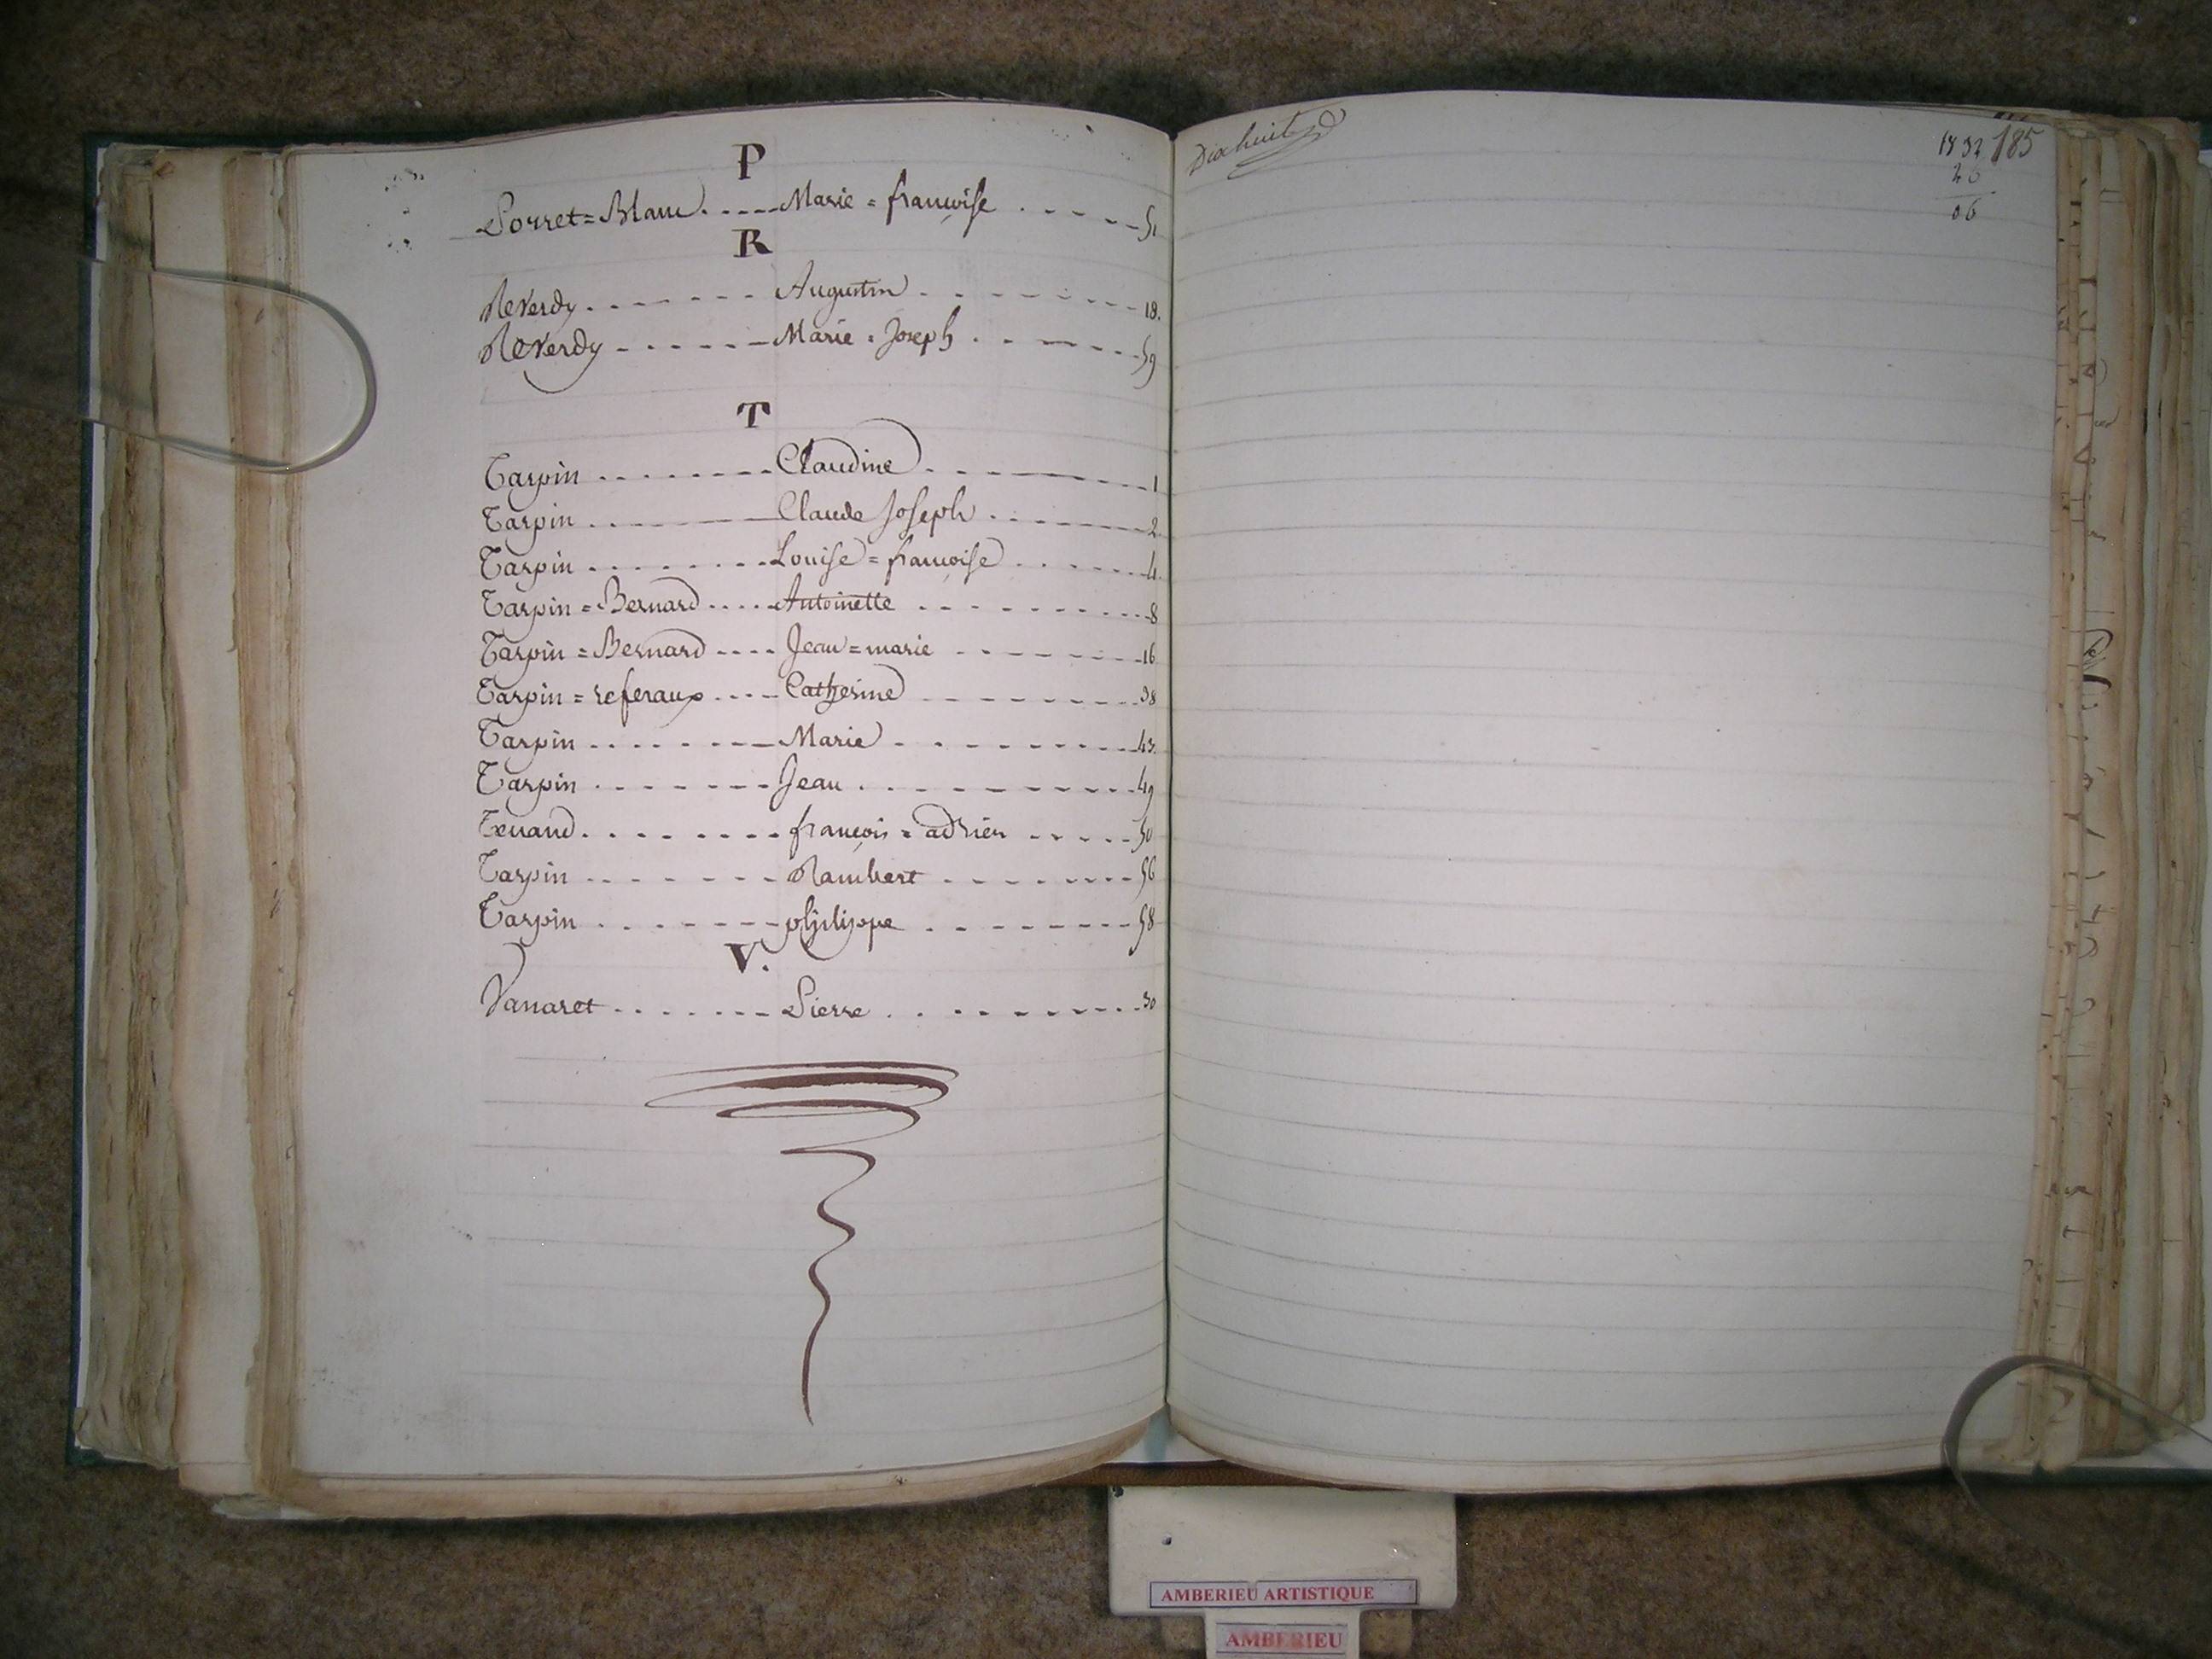 P
Porret=Blanc Marie=françoise 51
R
Reverdy Augustin 18.
Reverdy Marie=Joseph 59
T
Tarpin Claudine 1
Tarpin Claude Joseph 2
Tarpin Louise=françoise 4
Tarpin=Bernard Antoinette 8
Tarpin=Bernard Jean=marie 16
Tarpin=referaux Catherine 38
Tarpin Marie 43.
Tarpin Jean 49
Tenand françois=adrien 50
Tarpin Rambert 56
Tarpin philippe 58
V.
Vanaret Pierre 30
Dixhuit
1832 185
26
06
AMBERIEU ARTISTIQUE
AMBERIEU